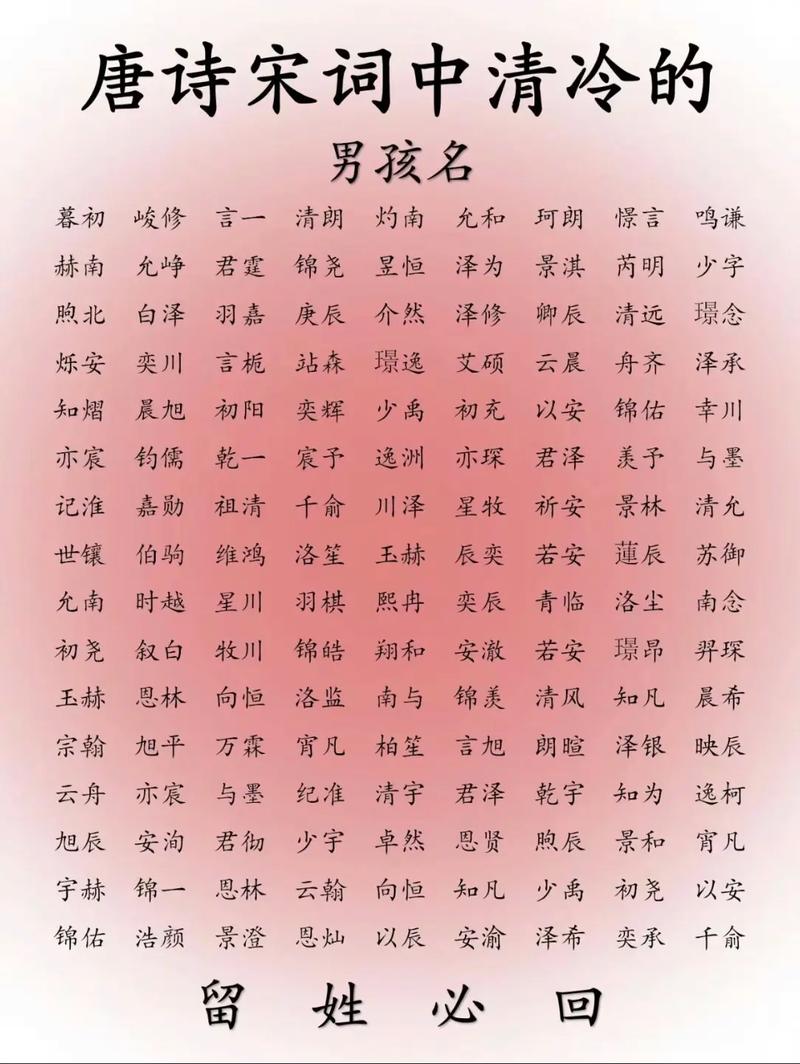 唐诗宋词中清冷的
男孩名
暮初 峻修 言一 清朗 灼南 允和 珂朗 憬言 鸣谦
赫南 允峥 君霆 锦尧 昱恒 泽为 景淇 芮明 少字
煦北 白泽 羽嘉 庚辰 介然 泽修 卿辰 清远 璟念
烁安 奕川 言栀 站森 璟逸 艾硕 云晨 舟齐 泽承
知熠 晨旭 初阳 奕辉 少禹 初充 以安 锦佑 幸川
亦宸 钧儒 乾一 宸予 逸洲 亦琛 君泽 羡予 与墨
记淮 嘉勋 祖清 千俞 川泽 星牧 祈安 景林 清允
世镶 伯驹 维鸿 洛笙 玉赫 辰奕 若安 蓮辰 苏御
允南 时越 星川 羽棋 熙冉 奕辰 青临 洛尘 南念
初尧 叙白 牧川 锦皓 翔和 安澈 若安 璟昂 羿琛
玉赫 恩林 向恒 洛监 南与 锦羡 清风 知凡 晨希
宗翰 旭平 万霖 宵凡 柏笙 言旭 朗暄 泽银 映辰
云舟 亦宸 与墨 纪准 清宇 君泽 乾宇 知为 逸柯
旭辰 安洵 君彻 少宇 卓然 恩贤 煦辰 景和 宵凡
宇赫 锦一 恩林 云翰 向恒 知凡 少禹 初尧 以安
锦佑 浩颜 景澄 恩灿 以辰 安渝 泽希 奕承 千俞
留 姓 必 回